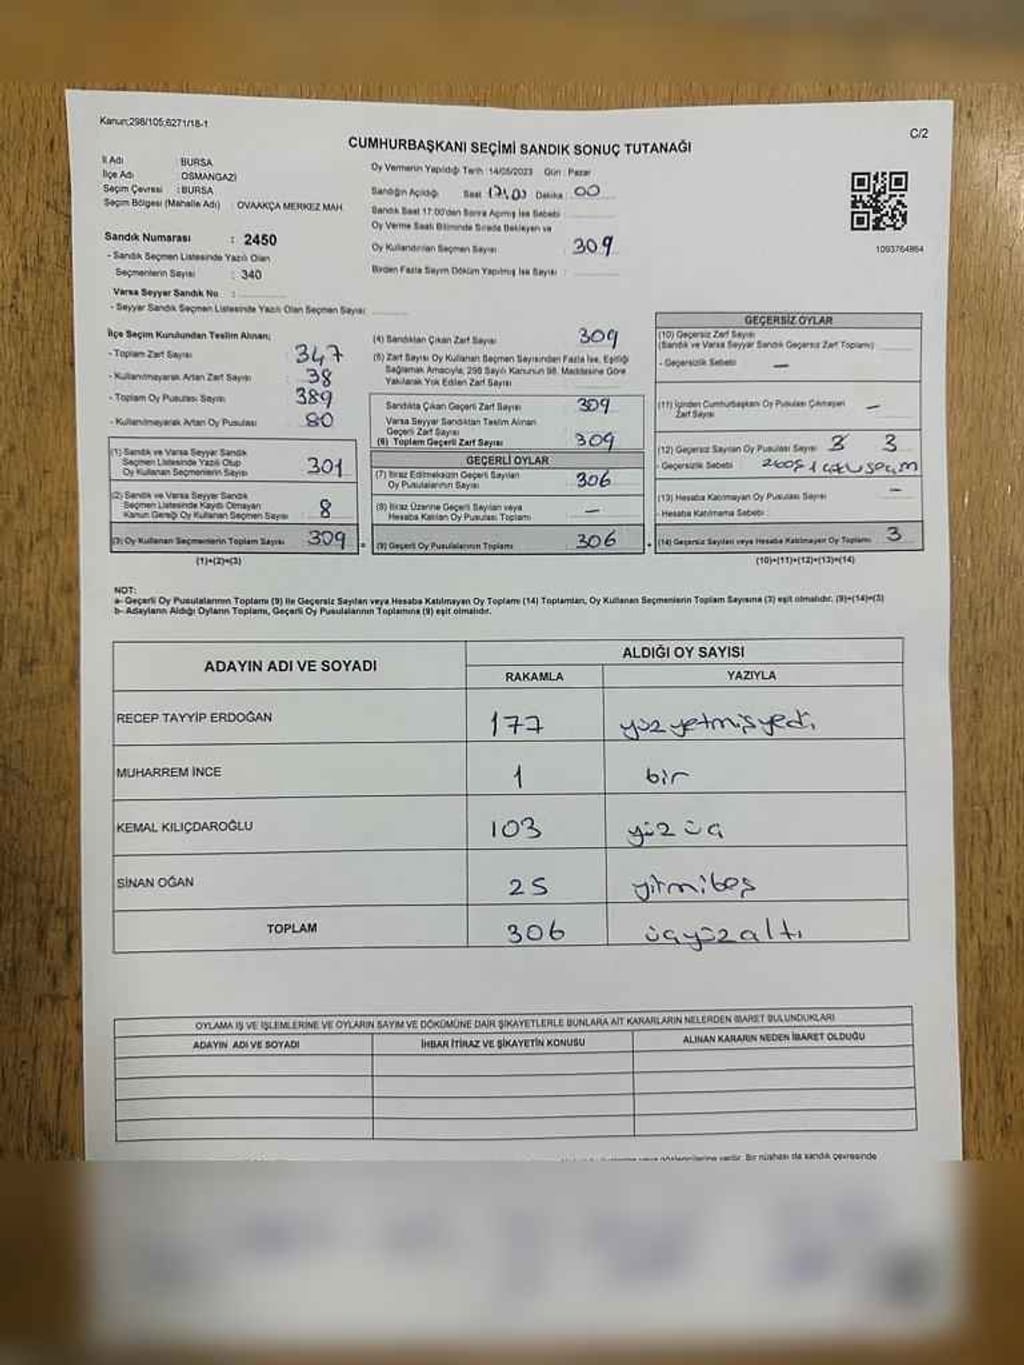 Kanun;298/105;6271/18-1
C/2
CUMHURBAŞKANI SEÇİMİ SANDIK SONUÇ TUTANAĞI
İl Adı : BURSA
İlçe Adı : OSMANGAZİ
Seçim Çevresi : BURSA
Seçim Bölgesi (Mahalle Adı) : OVAAKÇA MERKEZ MAH.
Sandık Numarası : 2450
- Sandık Seçmen Listesinde Yazılı Olan
Seçmenlerin Sayısı : 340
Varsa Seyyar Sandık No :
- Seyyar Sandık Seçmen Listesinde Yazılı Olan Seçmen Sayısı
Oy Vermenin Yapıldığı Tarih :14/05/2023 Gün : Pazar
Sandığın Açıldığı Saat Dakika 00
Sandık Saat 17:00'den Sonra Açılmış İse Sebebi
Oy Verme Saati Bitiminde Sırada Bekleyen ve
Oy Kullandırılan Seçmen Sayısı 309
Birden Fazla Sayım Döküm Yapılmış İse Sayısı :
1093764864
İlçe Seçim Kurulundan Teslim Alınan;
- Toplam Zarf Sayısı 347
- Kullanılmayarak Artan Zarf Sayısı 38
- Toplam Oy Pusulası Sayısı 389
- Kullanılmayarak Artan Oy Pusulası 80
(1) Sandık ve Varsa Seyyar Sandık
Seçmen Listesinde Yazılı Olup
Oy Kullanan Seçmenlerin Sayısı 301
(2) Sandık ve Varsa Seyyar Sandık
Seçmen Listesinde Kaydı Olmayan
Kanun Gereği Oy Kullanan Seçmen Sayısı 8
(3) Oy Kullanan Seçmenlerin Toplam Sayısı 309
(1)+(2)=(3)
(4) Sandıktan Çıkan Zarf Sayısı 309
(5) Zarf Sayısı Oy Kullanan Seçmen Sayısından Fazla İse, Eşitliği
Sağlamak Amacıyla, 298 Sayılı Kanunun 98. Maddesine Göre
Yakılarak Yok Edilen Zarf Sayısı
Sandıkta Çıkan Geçerli Zarf Sayısı 309
Varsa Seyyar Sandıktan Teslim Alınan
Geçerli Zarf Sayısı
(6) Toplam Geçerli Zarf Sayısı 309
GEÇERLİ OYLAR
(7) İtiraz Edilmeksizin Geçerli Sayılan
Oy Pusulalarının Sayısı 306
(8) İtiraz Üzerine Geçerli Sayılan veya
Hesaba Katılan Oy Pusulası Toplamı —
(9) Geçerli Oy Pusulalarının Toplamı 306
GEÇERSİZ OYLAR
(10) Geçersiz Zarf Sayısı
(Sandık ve Varsa Seyyar Sandık Geçersiz Zarf Toplamı)
- Geçersizlik Sebebi —
(11) İçinden Cumhurbaşkanı Oy Pusulası Çıkmayan
Zarf Sayısı —
(12) Geçersiz Sayılan Oy Pusulası Sayısı 3 3
- Geçersizlik Sebebi seçim
(13) Hesaba Katılmayan Oy Pusulası Sayısı —
- Hesaba Katılmama Sebebi :
(14) Geçersiz Sayılan veya Hesaba Katılmayan Oy Toplamı 3
(10)+(11)+(12)+(13)=(14)
NOT:
a- Geçerli Oy Pusulalarının Toplamı (9) ile Geçersiz Sayılan veya Hesaba Katılmayan Oy Toplamı (14) Toplamları, Oy Kullanan Seçmenlerin Toplam Sayısına (3) eşit olmalıdır. (9)+(14)=(3)
b- Adayların Aldığı Oyların Toplamı, Geçerli Oy Pusulalarının Toplamına (9) eşit olmalıdır.
ADAYIN ADI VE SOYADI
ALDIĞI OY SAYISI
RAKAMLA YAZIYLA
RECEP TAYYİP ERDOĞAN 177 yüz yetmiş yedi
MUHARREM İNCE 1 bir
KEMAL KILIÇDAROĞLU 103 yüz üç
SİNAN OĞAN 25 yirmibeş
TOPLAM 306 üçyüz altı
OYLAMA İŞ VE İŞLEMLERİNE VE OYLARIN SAYIM VE DÖKÜMÜNE DAİR ŞİKAYETLERLE BUNLARA AİT KARARLARIN NELERDEN İBARET BULUNDUKLARI
ADAYIN ADI VE SOYADI İHBAR İTİRAZ VE ŞİKAYETİN KONUSU ALINAN KARARIN NEDEN İBARET OLDUĞU
verilir. Bir nüshası da sandık çevresinde